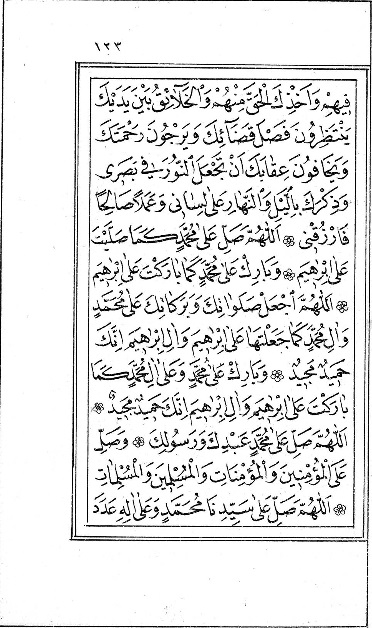 ١٢٣
فِيهِمْ وَأَخْذِكَ الْحَقَّ مِنْهُمْ وَالْخَلَائِقُ بَيْنَ يَدَيْكَ
يَنْتَظِرُونَ فَصْلَ قَضَائِكَ وَيَرْجُونَ رَحْمَتَكَ
وَيَخَافُونَ عِقَابَكَ أَنْ تَجْعَلَ النُّورَ فِي بَصَرِي
وَذِكْرَكَ بِاللَّيْلِ وَالنَّهَارِ عَلَى لِسَانِي وَعَمَلًا صَالِحًا
فَارْزُقْنِي ۞ اللَّهُمَّ صَلِّ عَلَى مُحَمَّدٍ كَمَا صَلَّيْتَ
عَلَى إِبْرَاهِيمَ ۞ وَبَارِكْ عَلَى مُحَمَّدٍ كَمَا بَارَكْتَ عَلَى إِبْرَاهِيمَ
۞ اللَّهُمَّ اجْعَلْ صَلَوَاتِكَ وَبَرَكَاتِكَ عَلَى مُحَمَّدٍ
وَآلِ مُحَمَّدٍ كَمَا جَعَلْتَهَا عَلَى إِبْرَاهِيمَ وَآلِ إِبْرَاهِيمَ إِنَّكَ
حَمِيدٌ مَجِيدٌ ۞ وَبَارِكْ عَلَى مُحَمَّدٍ وَعَلَى آلِ مُحَمَّدٍ كَمَا
بَارَكْتَ عَلَى إِبْرَاهِيمَ وَآلِ إِبْرَاهِيمَ إِنَّكَ حَمِيدٌ مَجِيدٌ ۞
اللَّهُمَّ صَلِّ عَلَى مُحَمَّدٍ عَبْدِكَ وَرَسُولِكَ ۞ وَصَلِّ
عَلَى الْمُؤْمِنِينَ وَالْمُؤْمِنَاتِ وَالْمُسْلِمِينَ وَالْمُسْلِمَاتِ
۞ اللَّهُمَّ صَلِّ عَلَى سَيِّدِنَا مُحَمَّدٍ وَعَلَى آلِهِ عَدَدَ